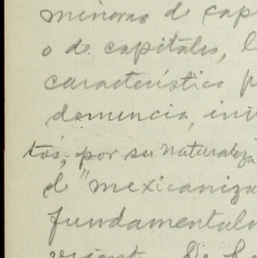 minoras de cap
o de capitales, l
característico p
denuncia, ini
tos, por su naturaleza
el "mexicaniza
fundamentalm
De la